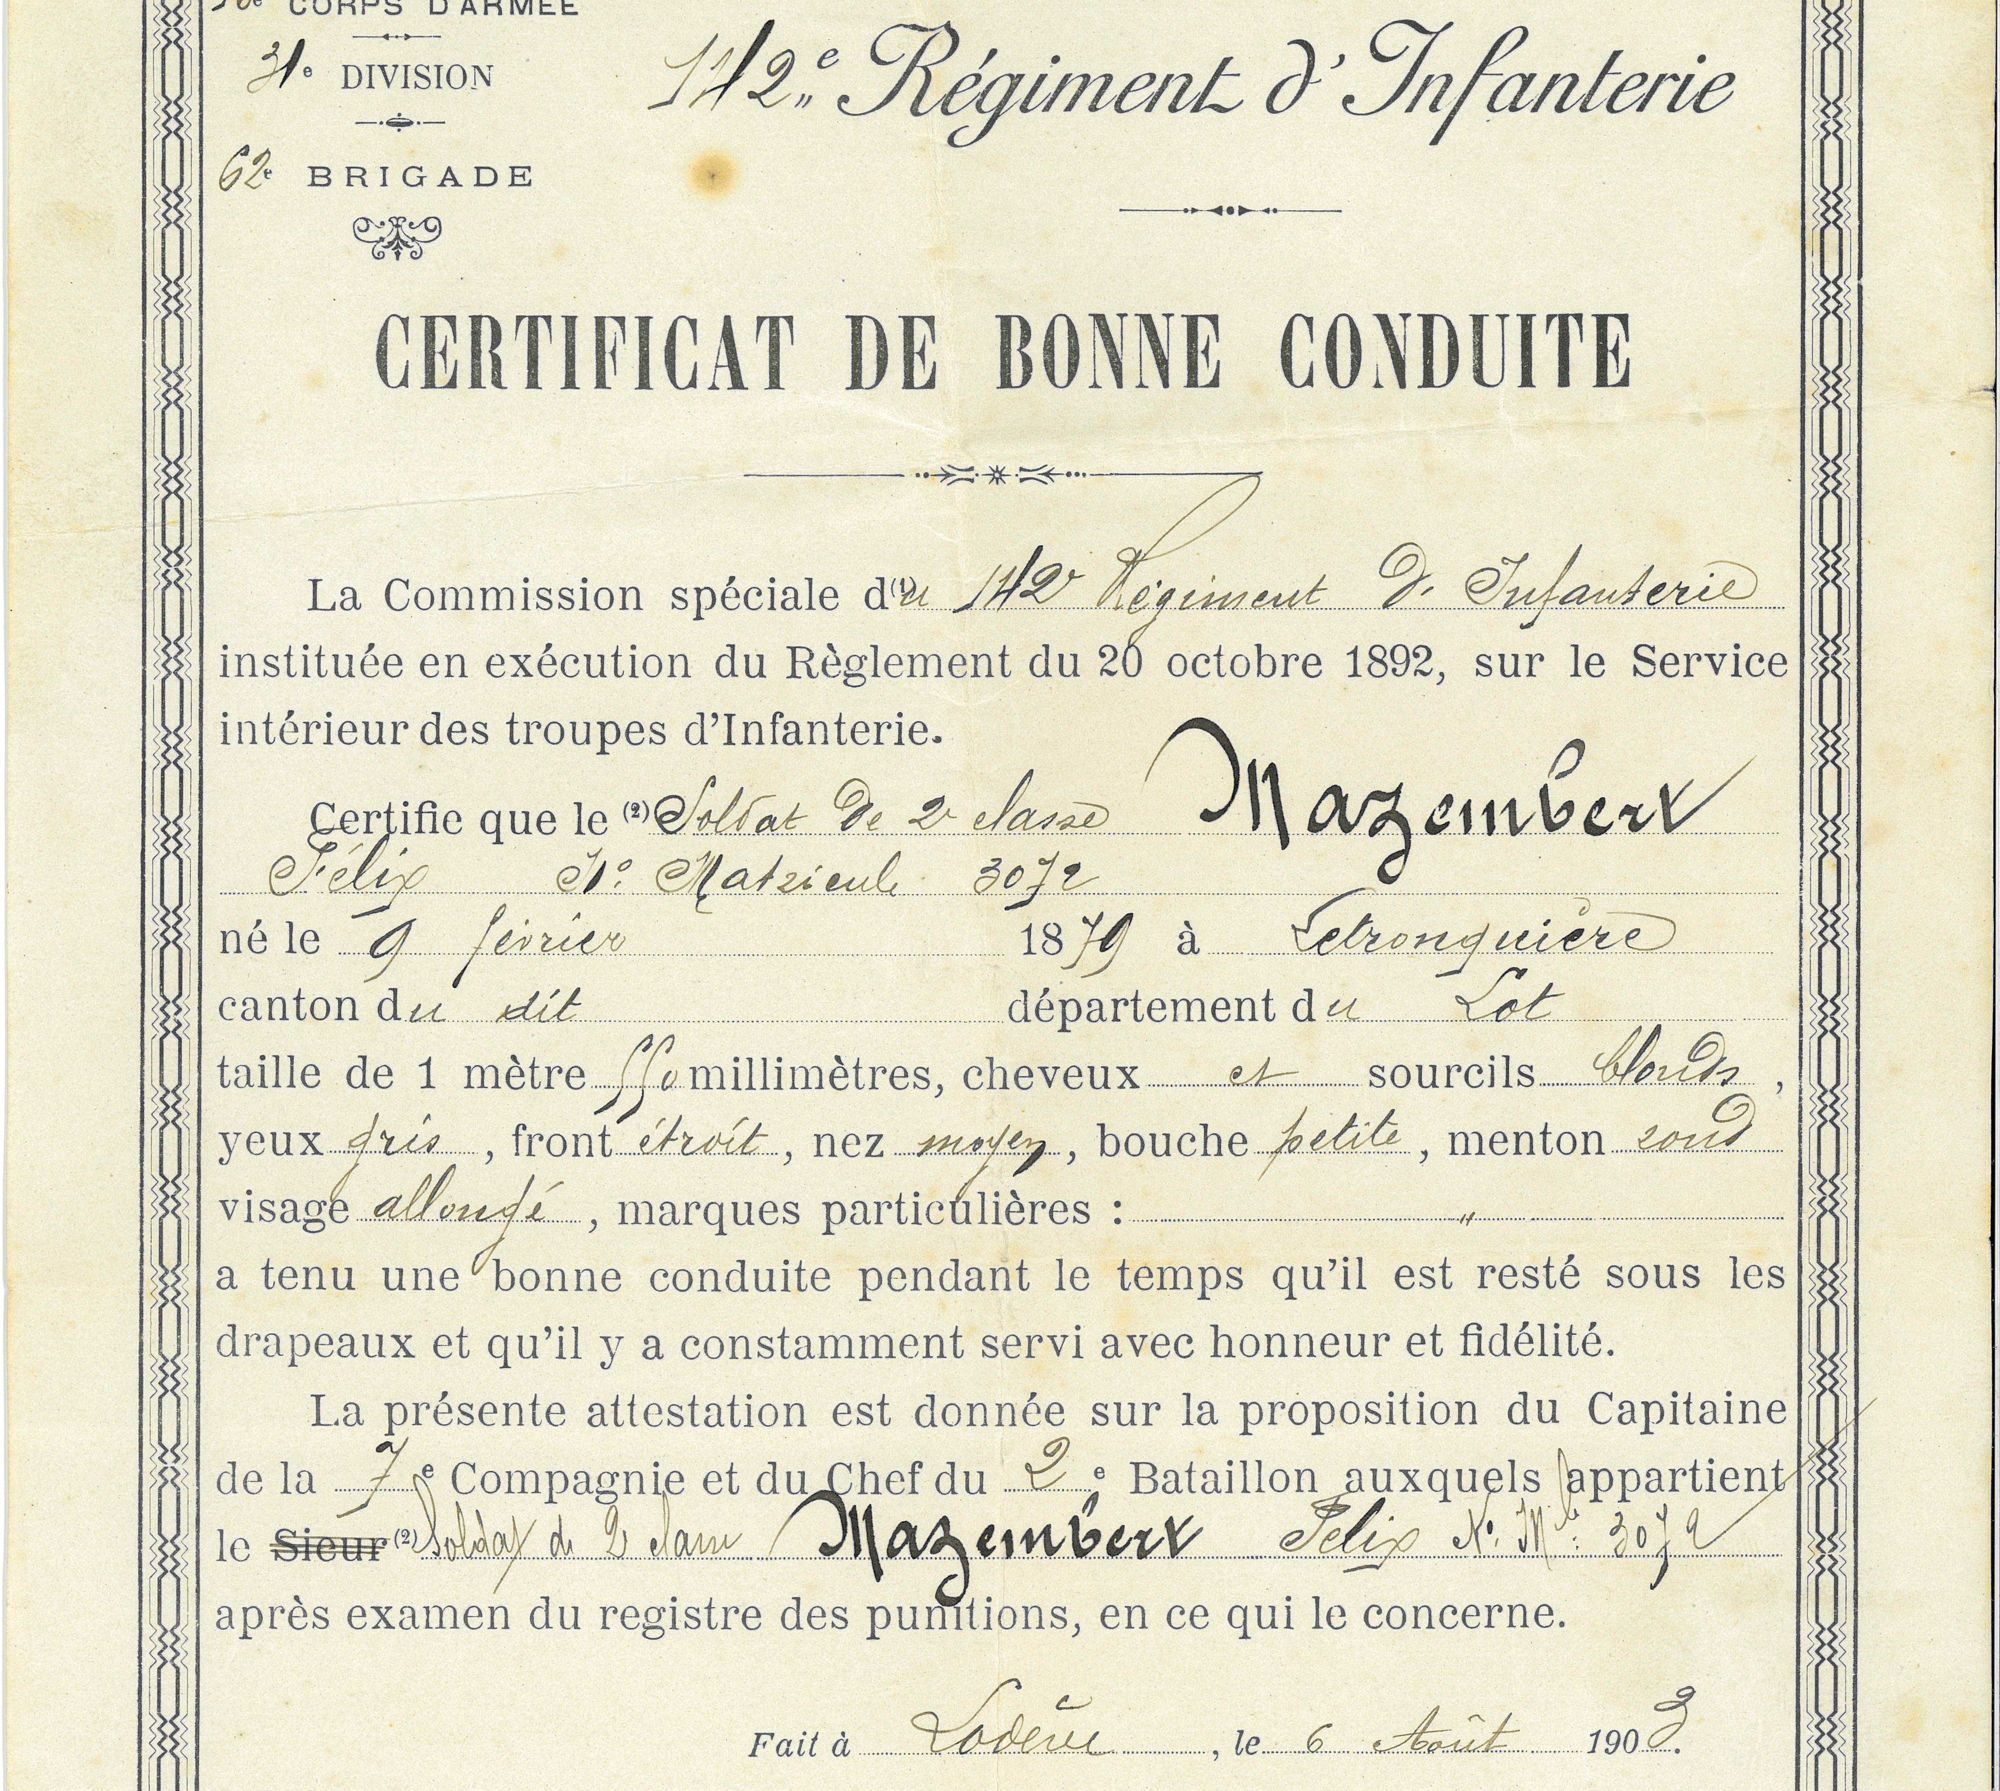 CORPS D'ARMÉE
31e DIVISION
62e BRIGADE
142e Régiment d'Infanterie
CERTIFICAT DE BONNE CONDUITE
La Commission spéciale d(1)u 142e Régiment d'Infanterie
instituée en exécution du Règlement du 20 octobre 1892, sur le Service
intérieur des troupes d'Infanterie.
Certifie que le (2) Soldat de 2e classe Mazembert
Félix No Matricule 3072
né le 9 février 1879 à Latronquière
canton du dit département du Lot
taille de 1 mètre 550 millimètres, cheveux et sourcils blonds,
yeux gris, front étroit, nez moyen, bouche petite, menton rond
visage allongé, marques particulières : "
a tenu une bonne conduite pendant le temps qu'il est resté sous les
drapeaux et qu'il y a constamment servi avec honneur et fidélité.
La présente attestation est donnée sur la proposition du Capitaine
de la 7e Compagnie et du Chef du 2e Bataillon auxquels appartient
le Sieur (2) Soldat de 2 classe Mazembert Félix No Mle: 3072
après examen du registre des punitions, en ce qui le concerne.
Fait à Lodève, le 6 Août 1903.